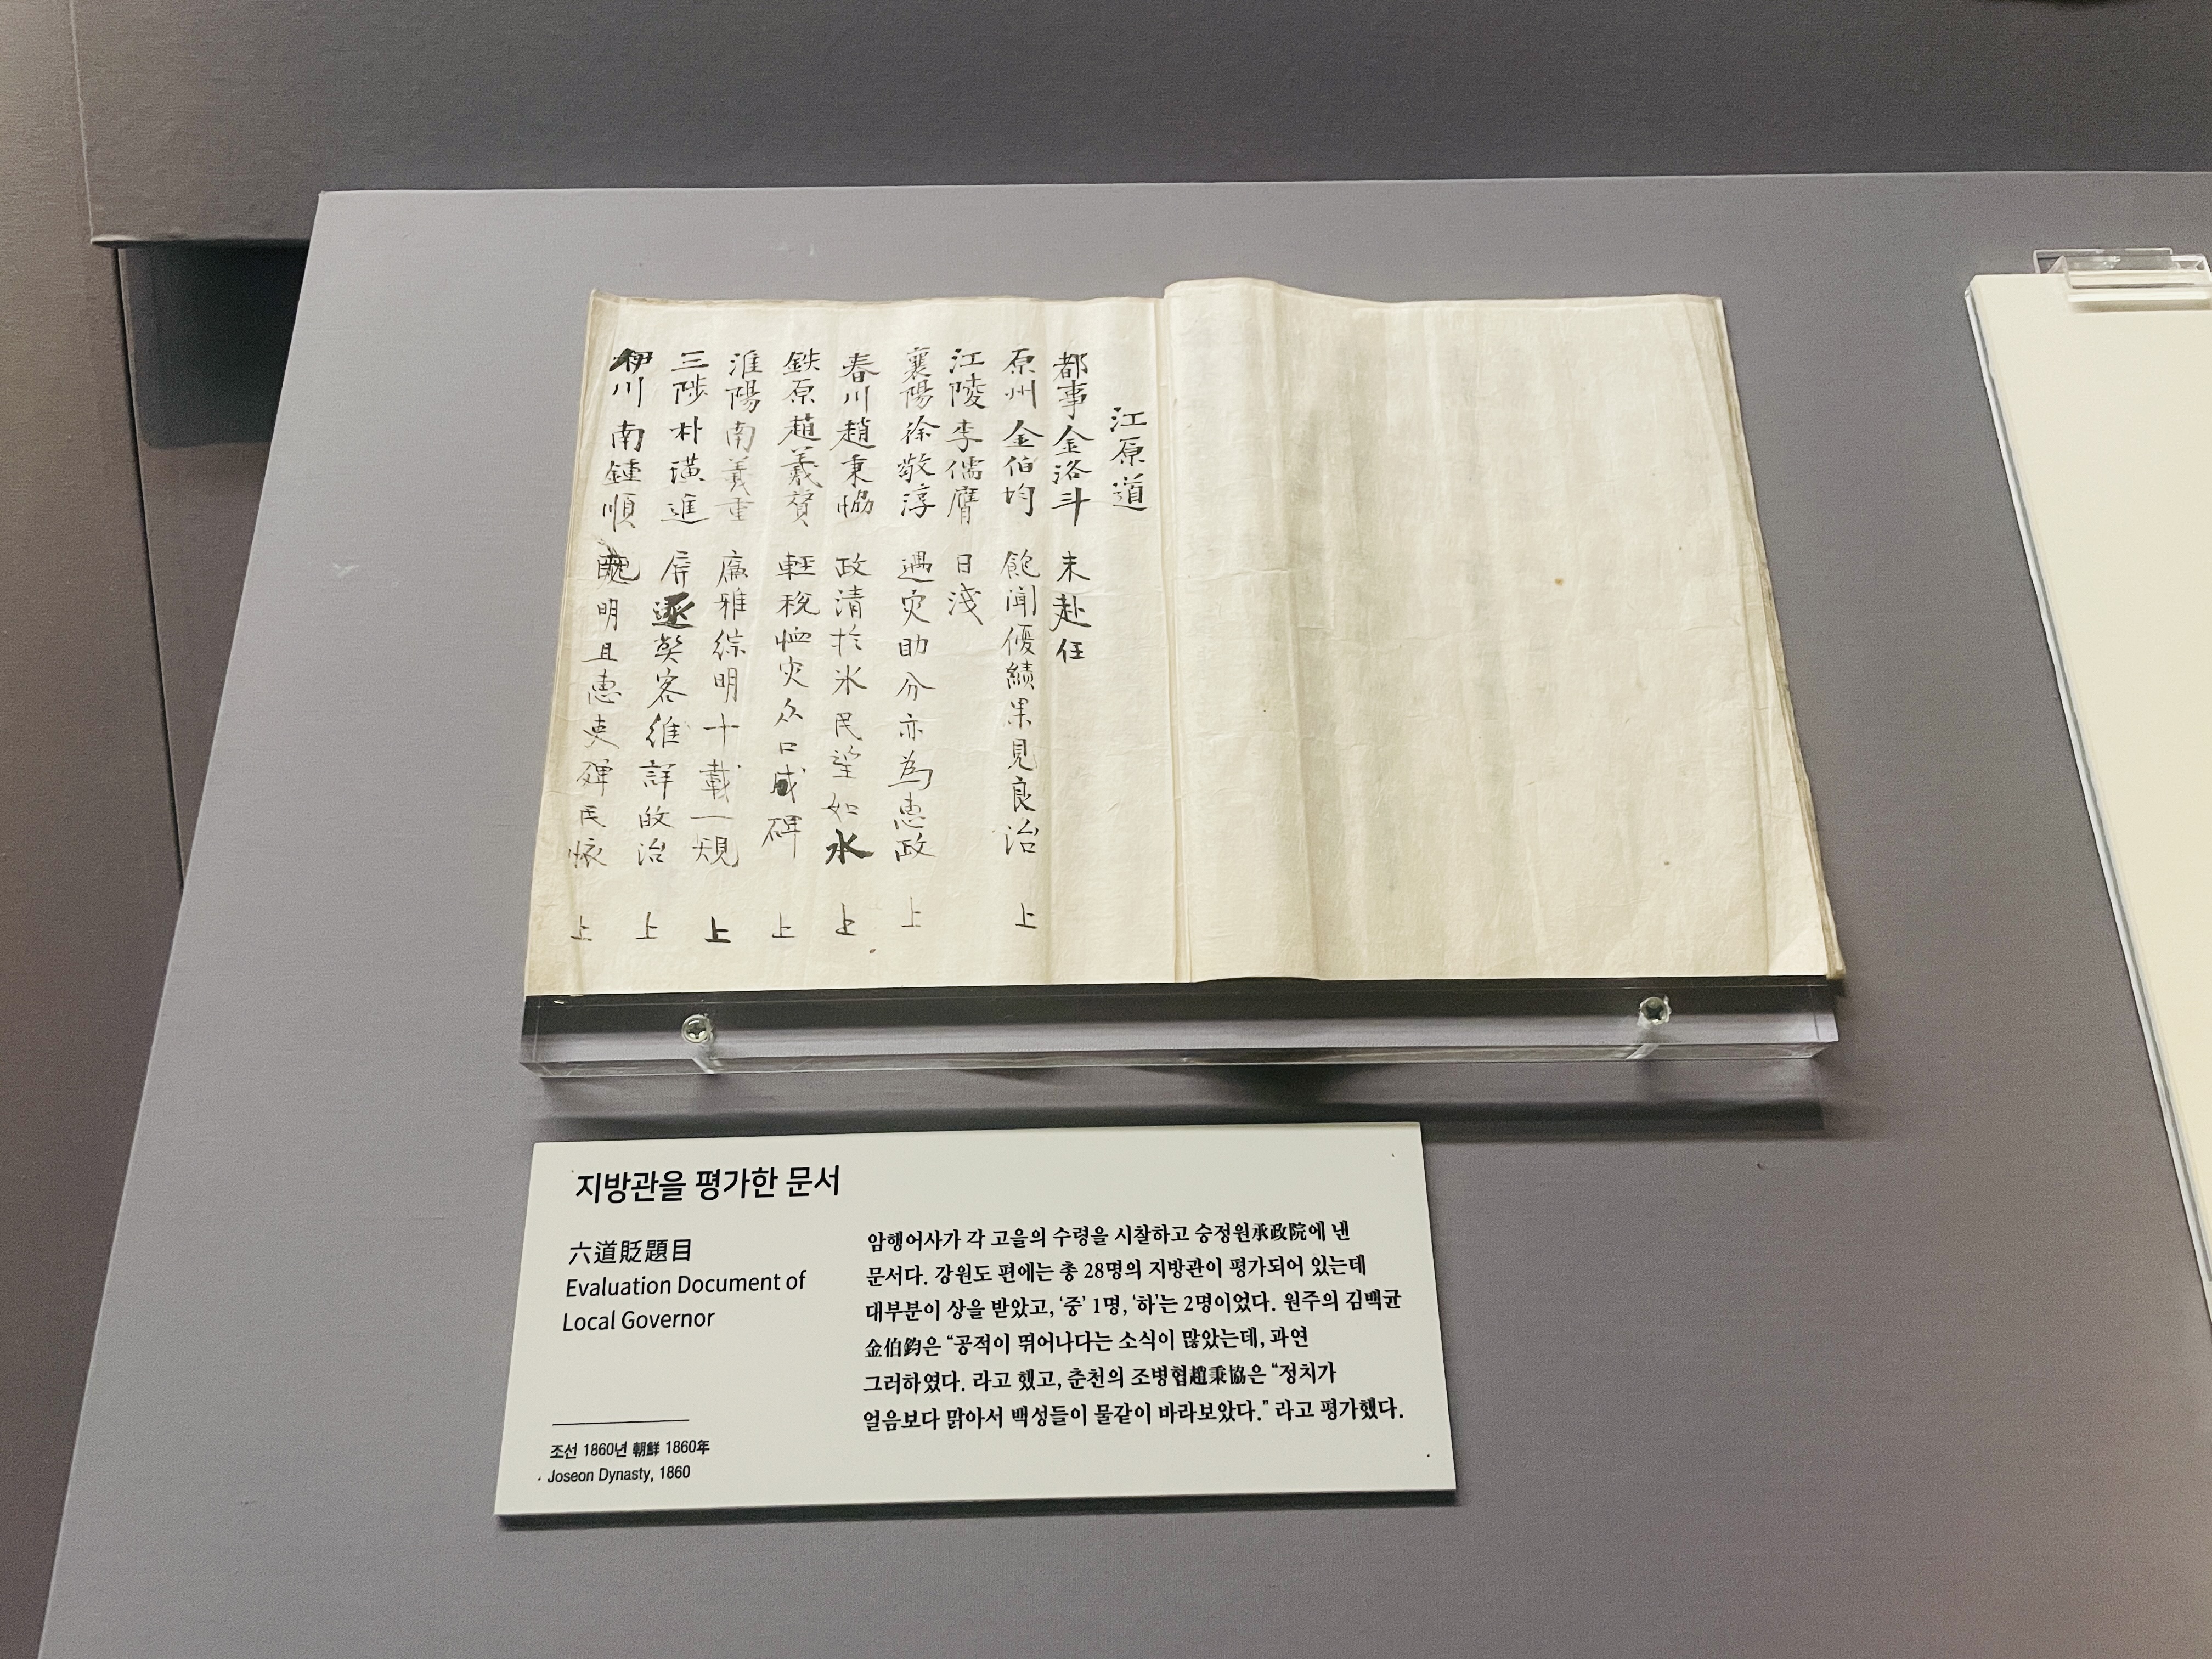 江原道
都事金洛斗 未赴任
原州金伯均 飽聞優績果見良治 上
江陵李儒膺 日淺
襄陽徐敬淳 遇灾助分亦為惠政 上
春川趙秉恊 政清於氷民望如水 上
鉄原趙羲贇 輕稅恤灾众口成碑 上
淮陽南羲重 廉雅綜明十載一規 上
三陟朴璜進 屏 客維詳政治 上
伊川南鍾順 明且惠吏 民 上
지방관을 평가한 문서
六道貶題目
Evaluation Document of
Local Governor
조선 1860년 朝鮮 1860年
Joseon Dynasty, 1860
암행어사가 각 고을의 수령을 시찰하고 승정원承政院에 낸
문서다. 강원도 편에는 총 28명의 지방관이 평가되어 있는데
대부분이 상을 받았고, ‘중’ 1명, ‘하’는 2명이었다. 원주의 김백균
金伯鈞은 “공적이 뛰어나다는 소식이 많았는데, 과연
그러하였다. 라고 했고, 춘천의 조병협趙秉協은 “정치가
얼음보다 맑아서 백성들이 물같이 바라보았다.” 라고 평가했다.